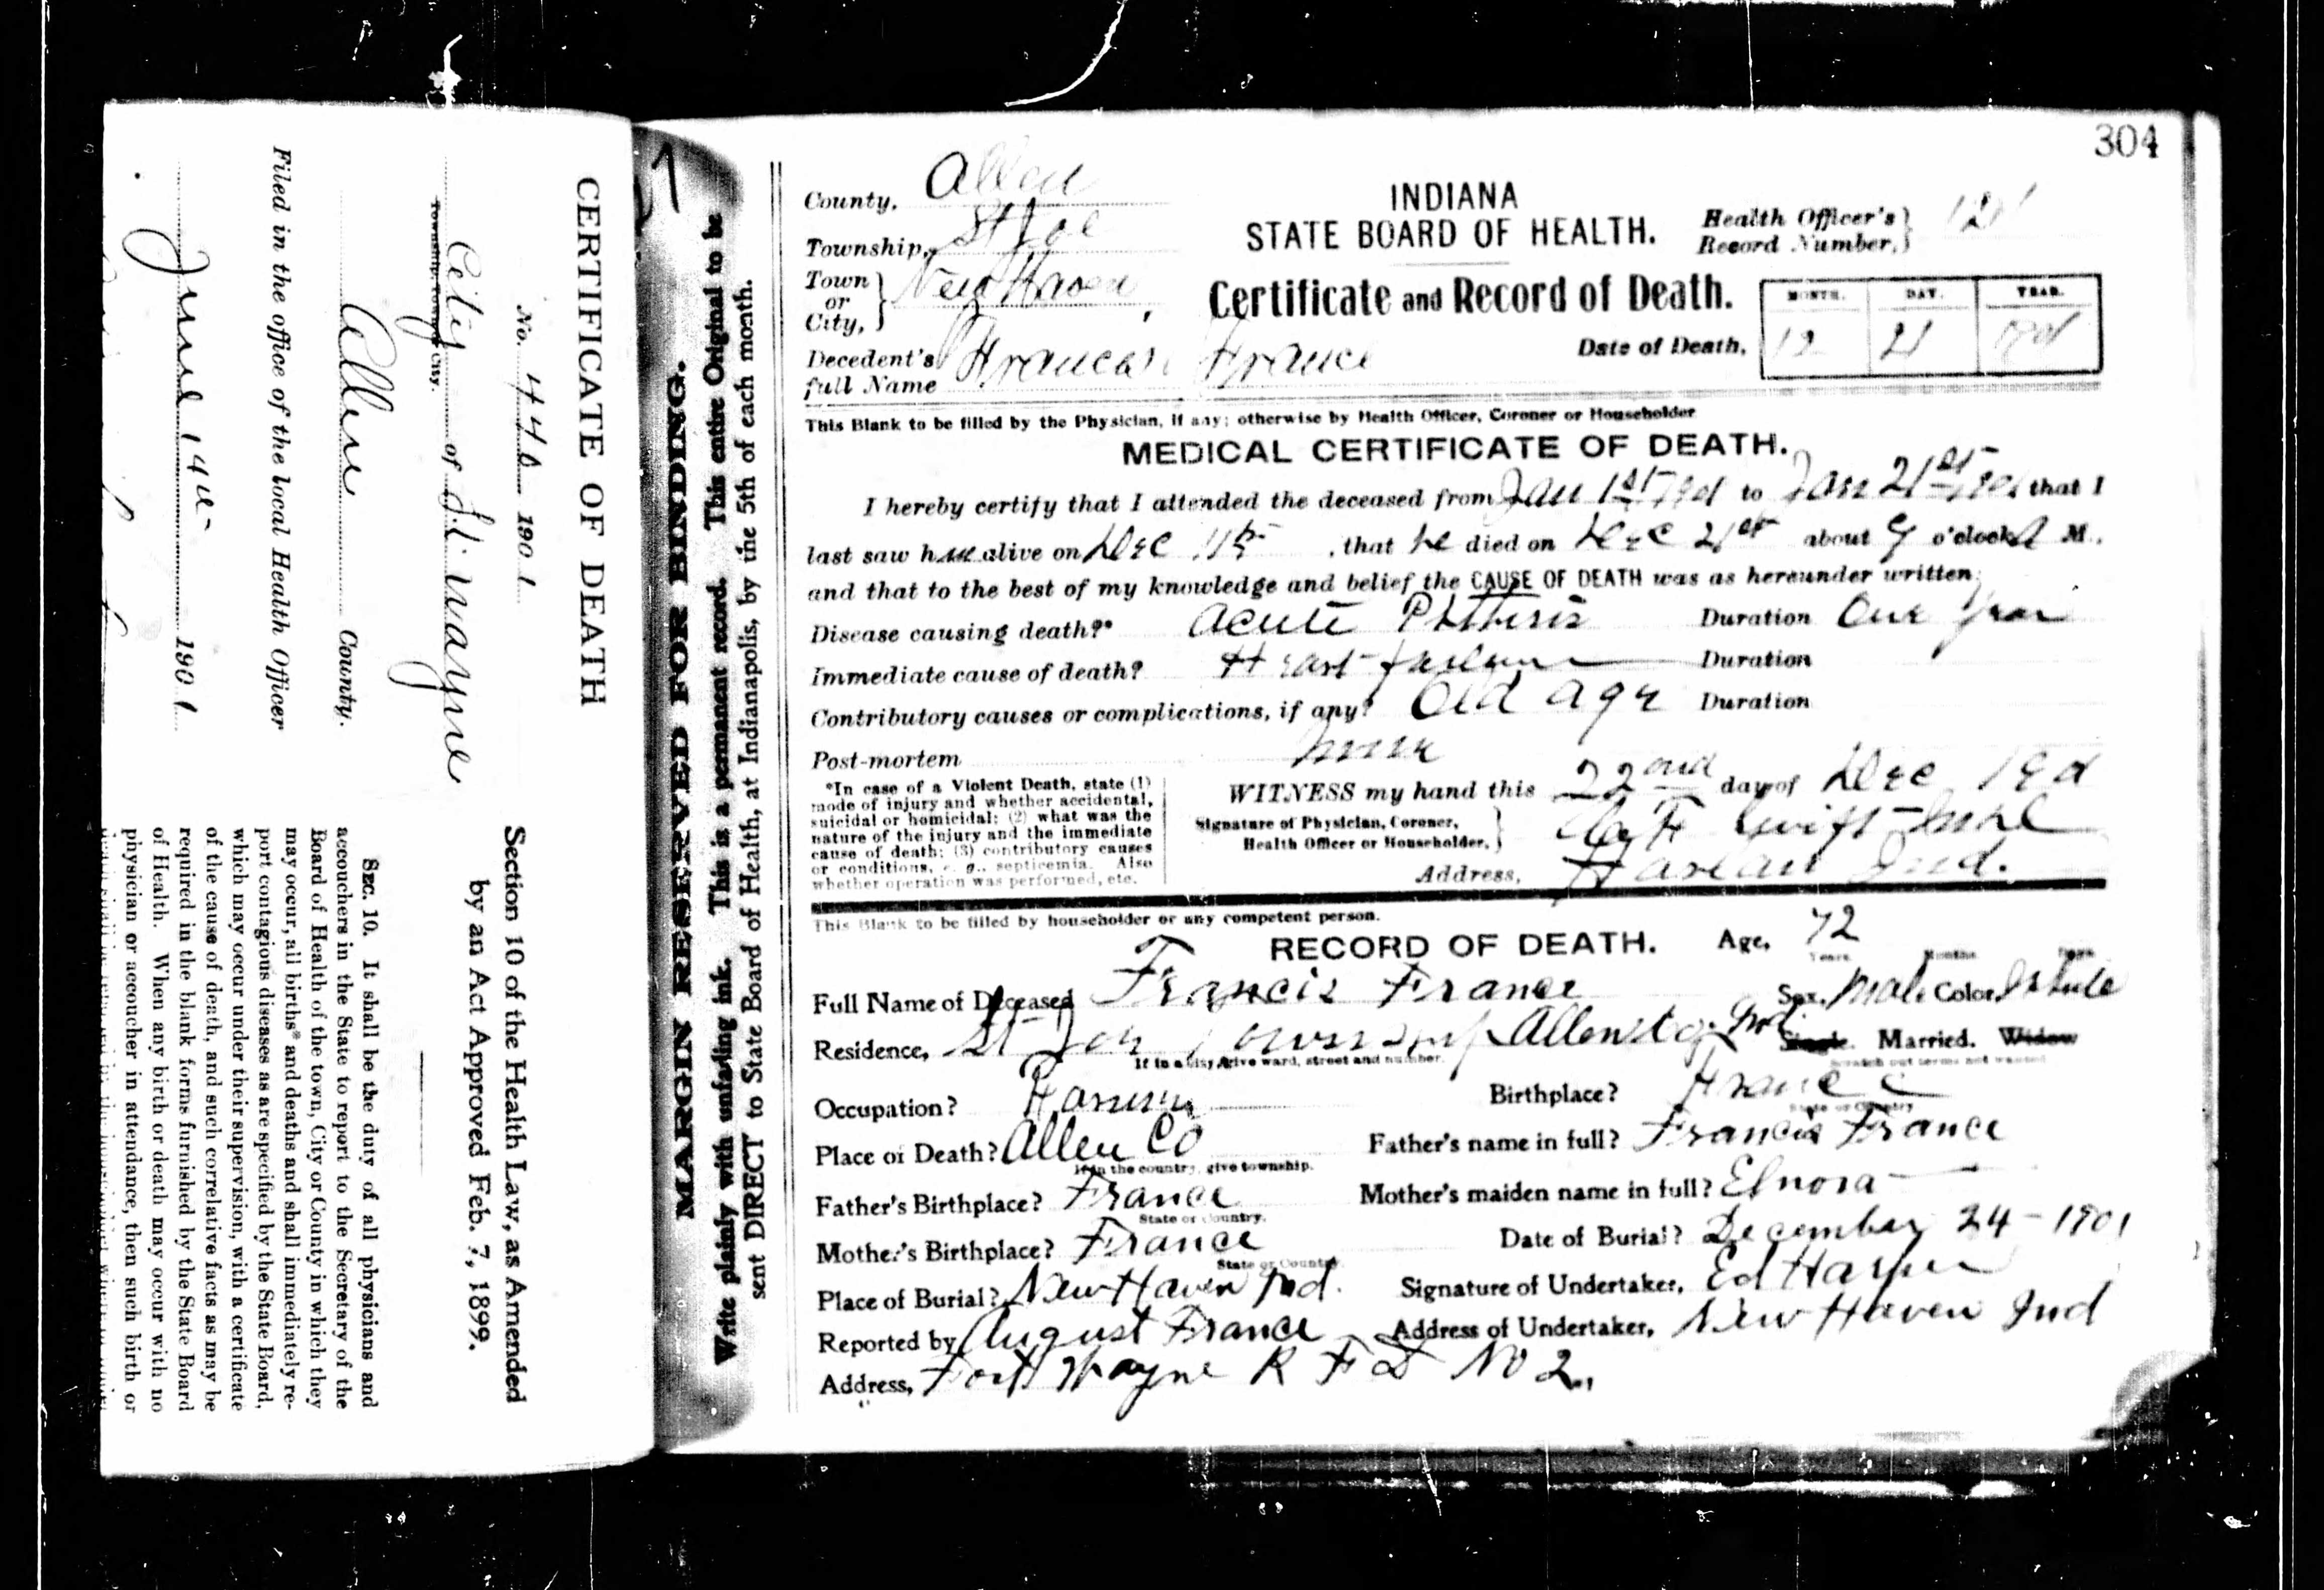 CERTIFICATE OF DEATH
No. 440 1901
City of Ft Wayne
Township, Town or City.
Allen County.
Filed in the office of the local Health Officer
June 14th 1901
Section 10 of the Health Law, as Amended
by an Act Approved Feb. 7, 1899.
SEC. 10. It shall be the duty of all physicians and
accouchers in the State to report to the Secretary of the
Board of Health of the town, City or County in which they
may occur, all births* and deaths and shall immediately re-
port contagious diseases as are specified by the State Board,
which may occur under their supervision, with a certificate
of the cause of death, and such correlative facts as may be
required in the blank forms furnished by the State Board
of Health. When any birth or death may occur with no
physician or accoucher in attendance, then such birth or
MARGIN RESERVED FOR BINDING.
Write plainly with unfading ink. This is a permanent record. This entire Original to be
sent DIRECT to State Board of Health, at Indianapolis, by the 5th of each month.
304
County, Allen
Township, St Joe
Town or City, New Haven,
INDIANA
STATE BOARD OF HEALTH.
Health Officer's Record Number,
Certificate and Record of Death.
MONTH. DAY. YEAR.
Date of Death, 12 21
Decedent's full Name Francis France
This Blank to be filled by the Physician, if any; otherwise by Health Officer, Coroner or Householder
MEDICAL CERTIFICATE OF DEATH.
I hereby certify that I attended the deceased from Jan 1st 1901 to Jan 21st 1901 that I
last saw him alive on Dec 11th, that he died on Dec 21st about 9 o'clock A M.,
and that to the best of my knowledge and belief the CAUSE OF DEATH was as hereunder written;
Disease causing death?* Acute Phthisis Duration One Year
Immediate cause of death? Heart failure Duration
Contributory causes or complications, if any? Old age Duration
Post-mortem none
*In case of a Violent Death, state (1)
mode of injury and whether accidental,
suicidal or homicidal; (2) what was the
nature of the injury and the immediate
cause of death; (3) contributory causes
or conditions, e. g., septicemia. Also
whether operation was performed, etc.
WITNESS my hand this 22nd day of Dec 1901
Signature of Physician, Coroner, Health Officer or Householder, Swift
Address, Harlan Ind.
This Blank to be filled by householder or any competent person.
RECORD OF DEATH. Age, 72
Years Months Days
Full Name of Deceased Francis France Sex, Male Color, White
Residence, St Joe Township Allen Co. Ind. Single. Married. Widow
If in a city, give ward, street and number. Scratch out terms not wanted
Occupation? Farmer Birthplace? France
State or Country
Place of Death? Allen Co Father's name in full? Francis France
If in the country, give township.
Father's Birthplace? France Mother's maiden name in full? Elnora
State or Country.
Mother's Birthplace? France Date of Burial? December 24 - 1901
State or Country.
Place of Burial? New Haven Ind. Signature of Undertaker, Ed Harper
Reported by August France Address of Undertaker, New Haven Ind
Address, Fort Wayne R F D No 2.